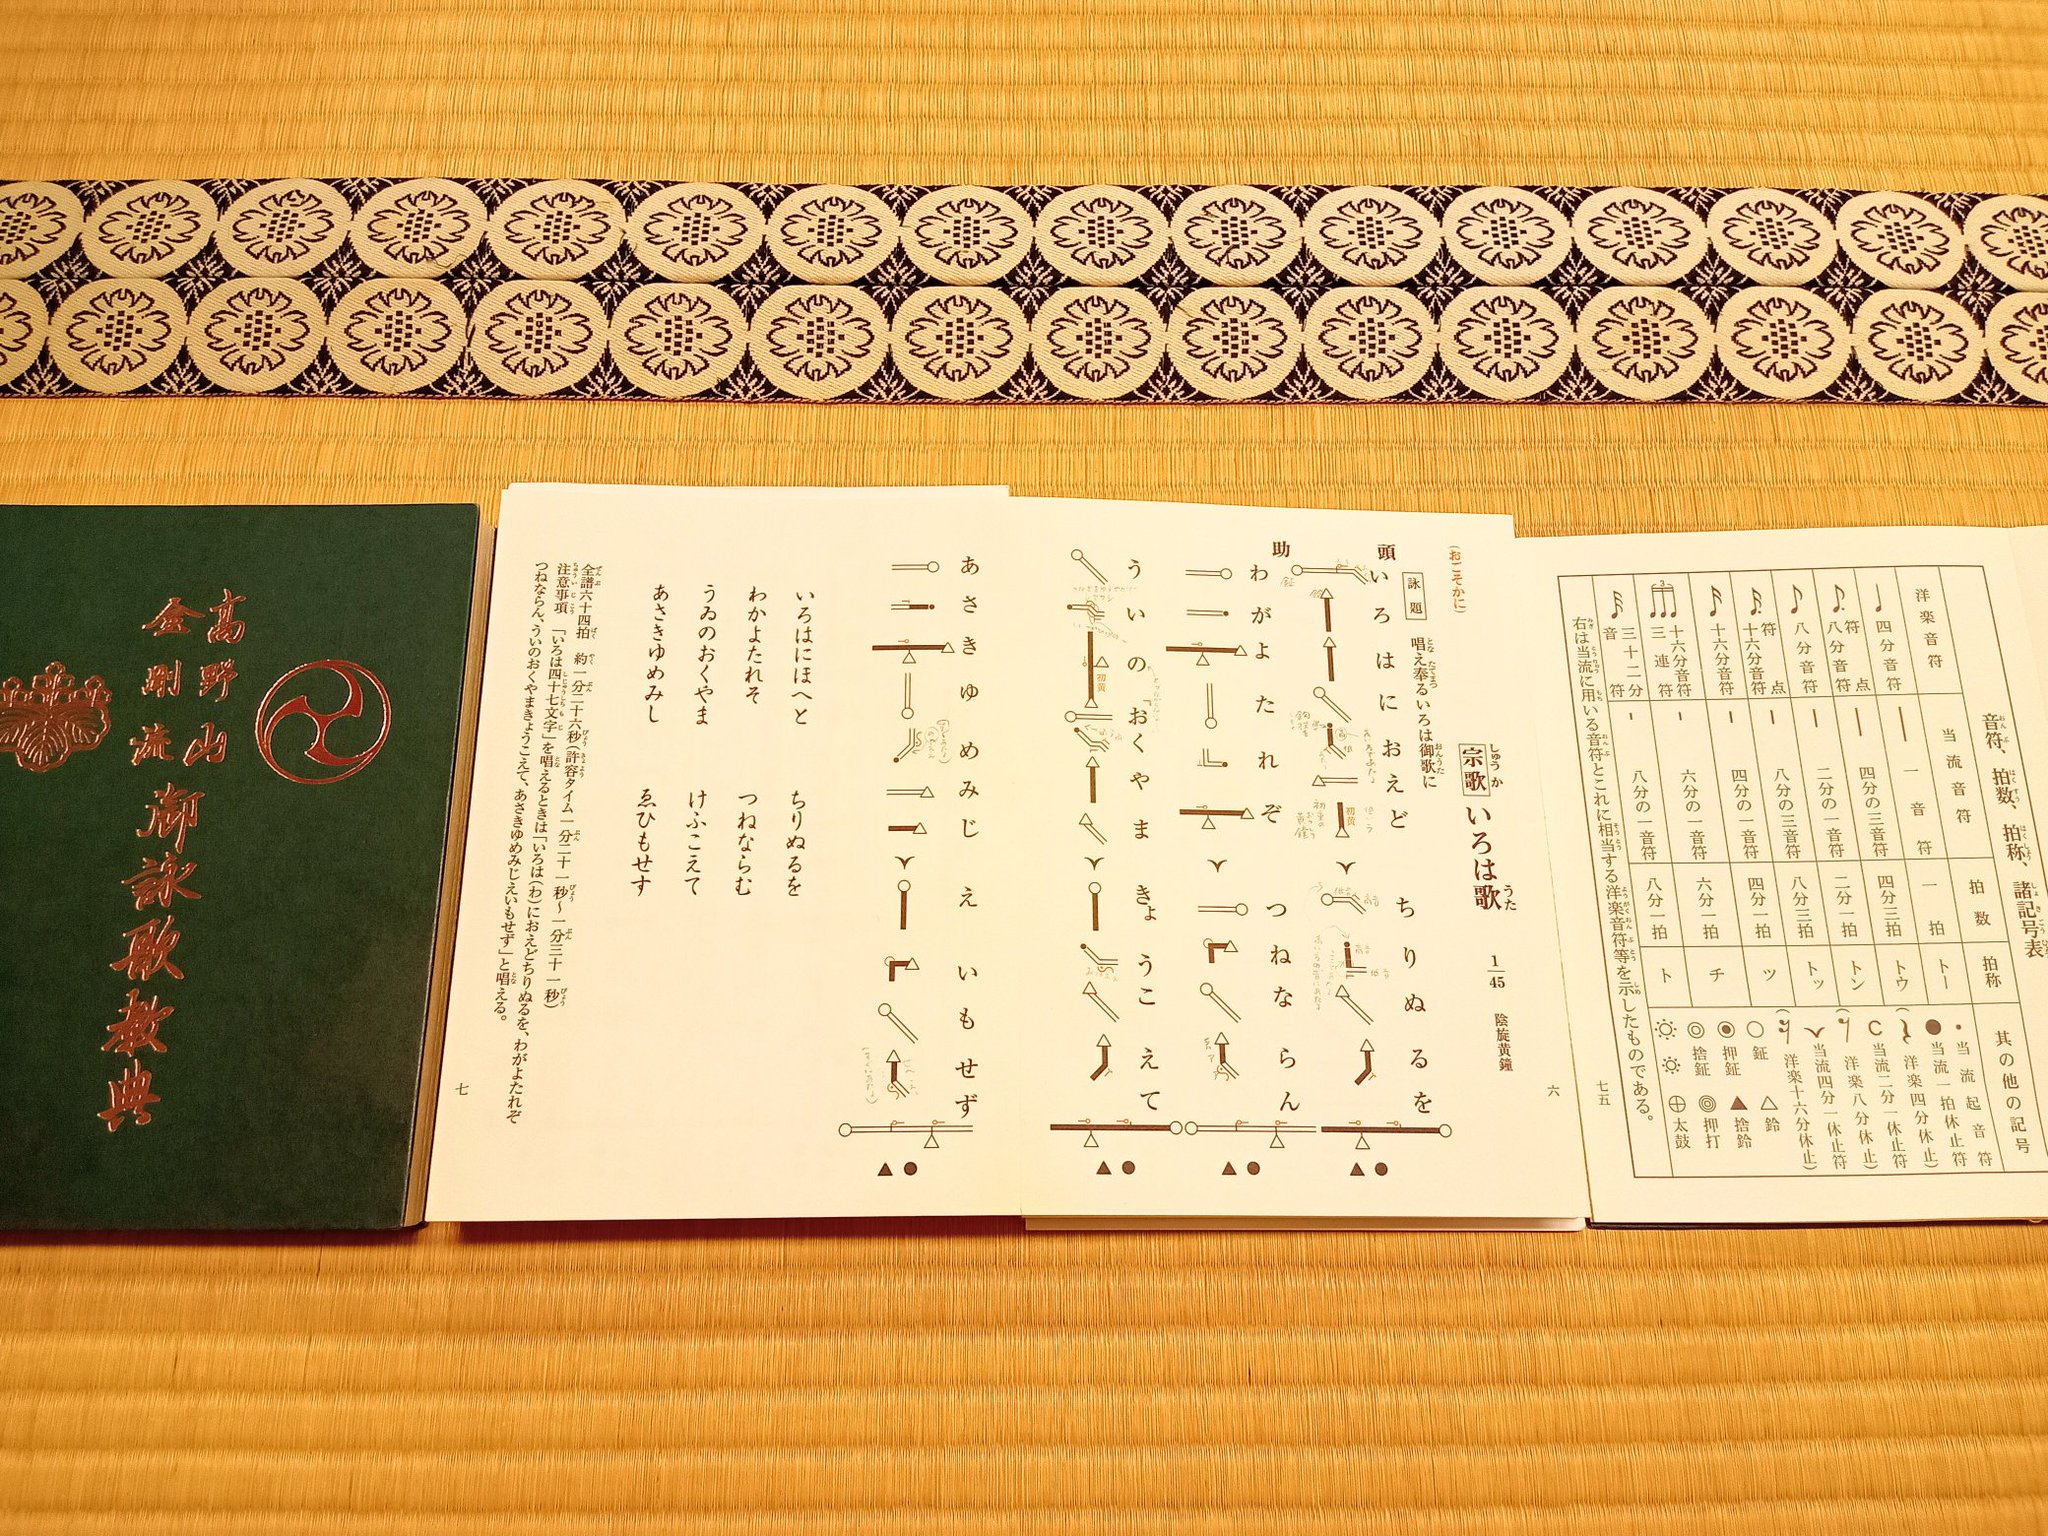 高野山
金剛流
御詠歌教典
音符、拍数、拍称、諸記号表
洋楽音符
当流音符
拍数
拍称
其の他の記号
四分音符
一音符
一拍
トー
八分音符点
四分の三音符
四分三拍
トウ
八分音符
二分の一音符
二分一拍
トン
十六分音符点
八分の三音符
八分三拍
トッ
十六分音符
四分の一音符
四分一拍
ツ
十六分音符三連符
六分の一音符
六分一拍
チ
三十二分音符
八分の一音符
八分一拍
ト
当流起音符
当流一拍休止符
(洋楽四分休止)
当流二分一休止符
(洋楽八分休止)
当流四分一休止符
(洋楽十六分休止)
鉦
押鉦
捨鉦
鈴
捨鈴
押打
太鼓
右は当流に用いる音符とこれに相当する洋楽音符等を示したものである。
七五
宗歌 いろは歌 1/45 陰旋黄鐘
(おごそかに)
詠題 唱え奉るいろは御歌に
頭
いろはにおえど ちりぬるを
助
わがよたれぞ つねならん
ういのおくやま きょうこえて
六
あさきゆめみじ えいもせず
いろはにほへと ちりぬるを
わかよたれそ つねならむ
うゐのおくやま けふこえて
あさきゆめみし ゑひもせす
全譜六十四拍 約一分二十六秒(許容タイム一分二十一秒～一分三十一秒)
注意事項 「いろは四十七文字」を唱えるときは「いろは(わ)におえどちりぬるを、わがよたれぞ
つねならん、ういのおくやまきょうこえて、あさきゆめみじえいもせず」と唱える。
七